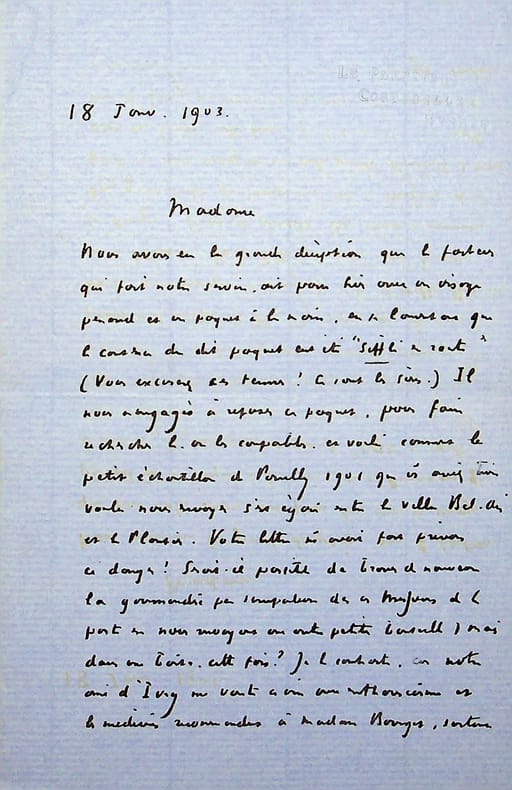 18 Janv. 1903.
Madame
Nous avons eu la grande déception que le facteur
qui fait notre service, ait paru hier avec un visage
penaud et un paquet à la main, en s'excusant que
le contenu du dit paquet eut été "sifflé en route"
(Vous excuserez ces termes! Ce sont les siens.) Il
nous a engagés à refuser ce paquet, pour faire
rechercher le ou les coupables, et voilà comment le
petit échantillon de Pouilly 1901 que vs aviez bien
voulu nous envoyer s'est égaré entre la villa Bel-Air
et le Plessis. Votre lettre ns avait fait prévoir
ce danger! Serait-il possible de tromper de nouveau
la gourmandise peu scrupuleuse de ces Messieurs de la
poste en nous envoyant une autre petite bouteille, mais
dans une boite, cette fois? Je le souhaite, car notre
ami d'Indy me vante avec enthousiasme
les médecins recommandent à madame Bourges, surtout